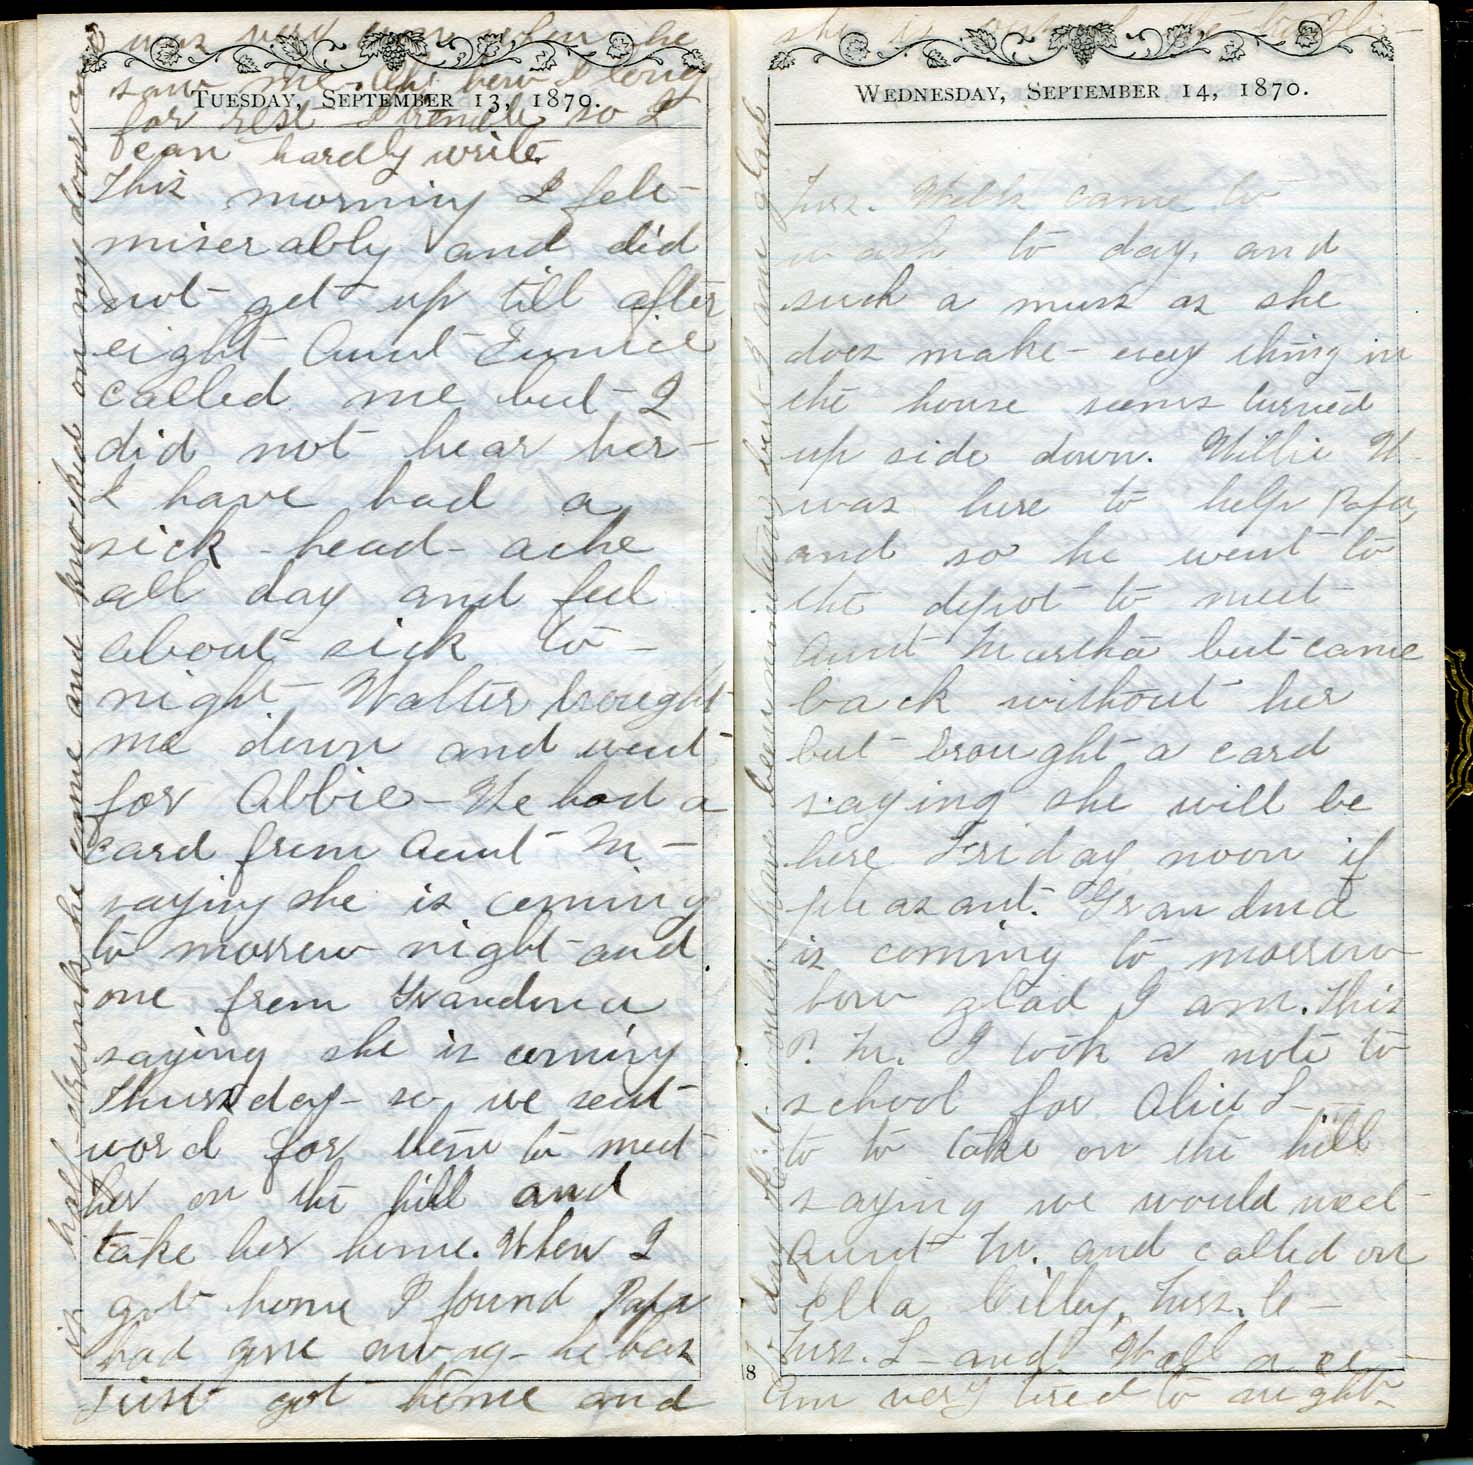 TUESDAY, SEPTEMBER 13, 1870.
This morning I felt
miserably and did
not get up till after
eight Aunt Eunice
called me but I
did not hear her-
I have had a
sick-head-ache
all day and feel
about sick to-
night. Walter brought
me down and went
for Abbie- We had a
card from Aunt M-
saying she is coming
to morrow night-and
one from Grandma
saying she is coming
Thursday- so we sent
word for them to meet
her on the hill and
take her home. When I
got home I found Papa
had gone away- he has
just got home and
is half-drunk he came and knocked on my door and
I was when he
saw me. Oh! how I long
for rest I tremble so I
can hardly write.
WEDNESDAY, SEPTEMBER 14, 1870.
Mrs. Webb came to
wash to day, and
such a muss as she
does make- every thing in
the house seems turned
up side down. Willie W-
was here to help Papa,
and so he went to
the depot to meet
Aunt Martha but came
back without her
but brought a card
saying she will be
here Friday noon if
pleasant. Grandma
is coming to morrow
how glad I am. This
P. M. I took a note to
school for Alice L-
to to take on the hill
saying we would meet
Aunt M. and called on
Ella Cilley, Mrs. C-
Mrs. L- and Wallace-
am very tired to night-
8
she is